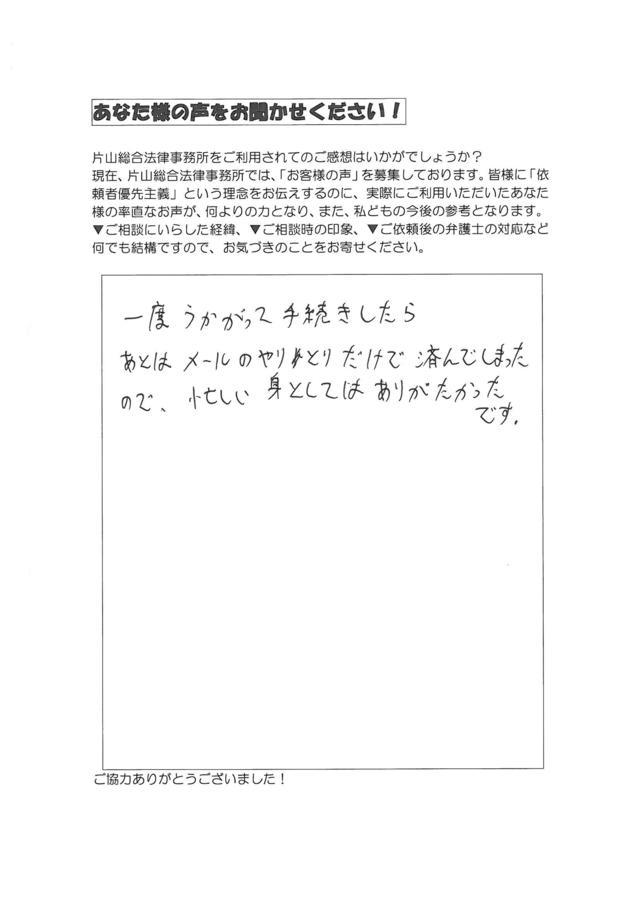 あなた様の声をお聞かせください！
片山総合法律事務所をご利用されてのご感想はいかがでしょうか？
現在、片山総合法律事務所では、「お客様の声」を募集しております。皆様に「依
頼者優先主義」という理念をお伝えするのに、実際にご利用いただいたあなた
様の率直なお声が、何よりの力となり、また、私どもの今後の参考となります。
▼ご相談にいらした経緯、▼ご相談時の印象、▼ご依頼後の弁護士の対応など
何でも結構ですので、お気づきのことをお寄せください。
一度 うかがって 手続きしたら
あとは メールのやりとり だけで 済んでしまった
ので、忙しい 身としては ありがたかった
です。
ご協力ありがとうございました！